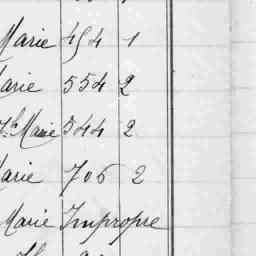 Marie 454 1
Marie 554 2
Marie 544 2
Marie 706 2
Marie Impropre